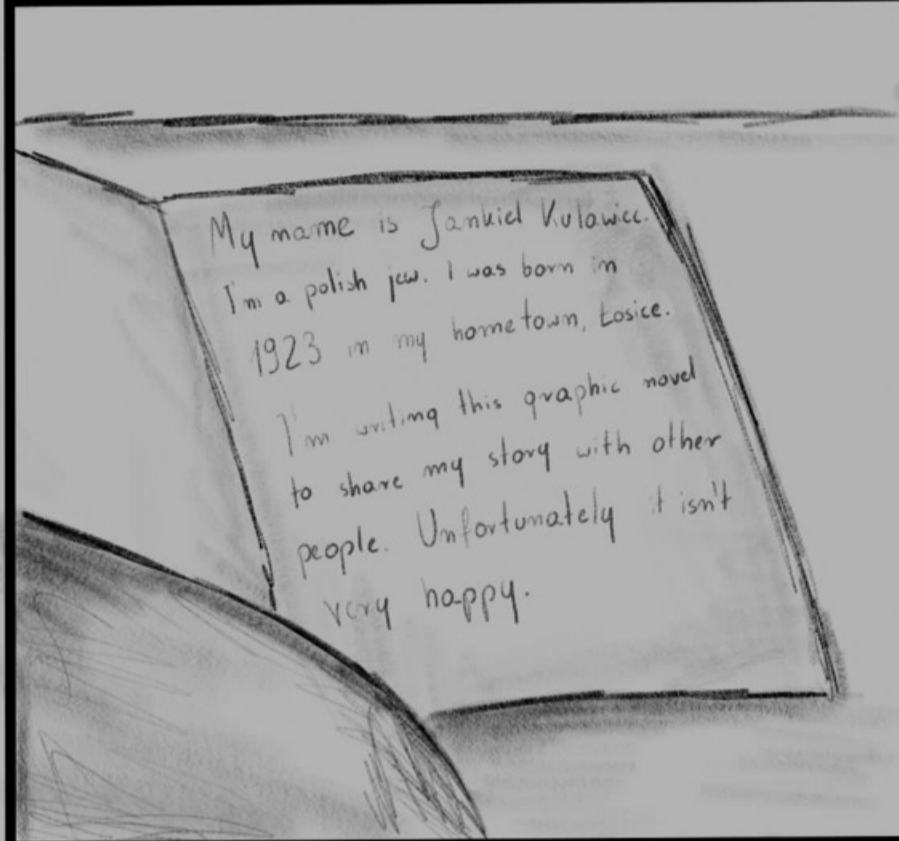 My name is Jankiel Kulawiec.
I'm a polish jew. I was born in
1923 in my hometown, Łosice.
I'm writing this graphic novel
to share my story with other
people. Unfortunately it isn't
very happy.